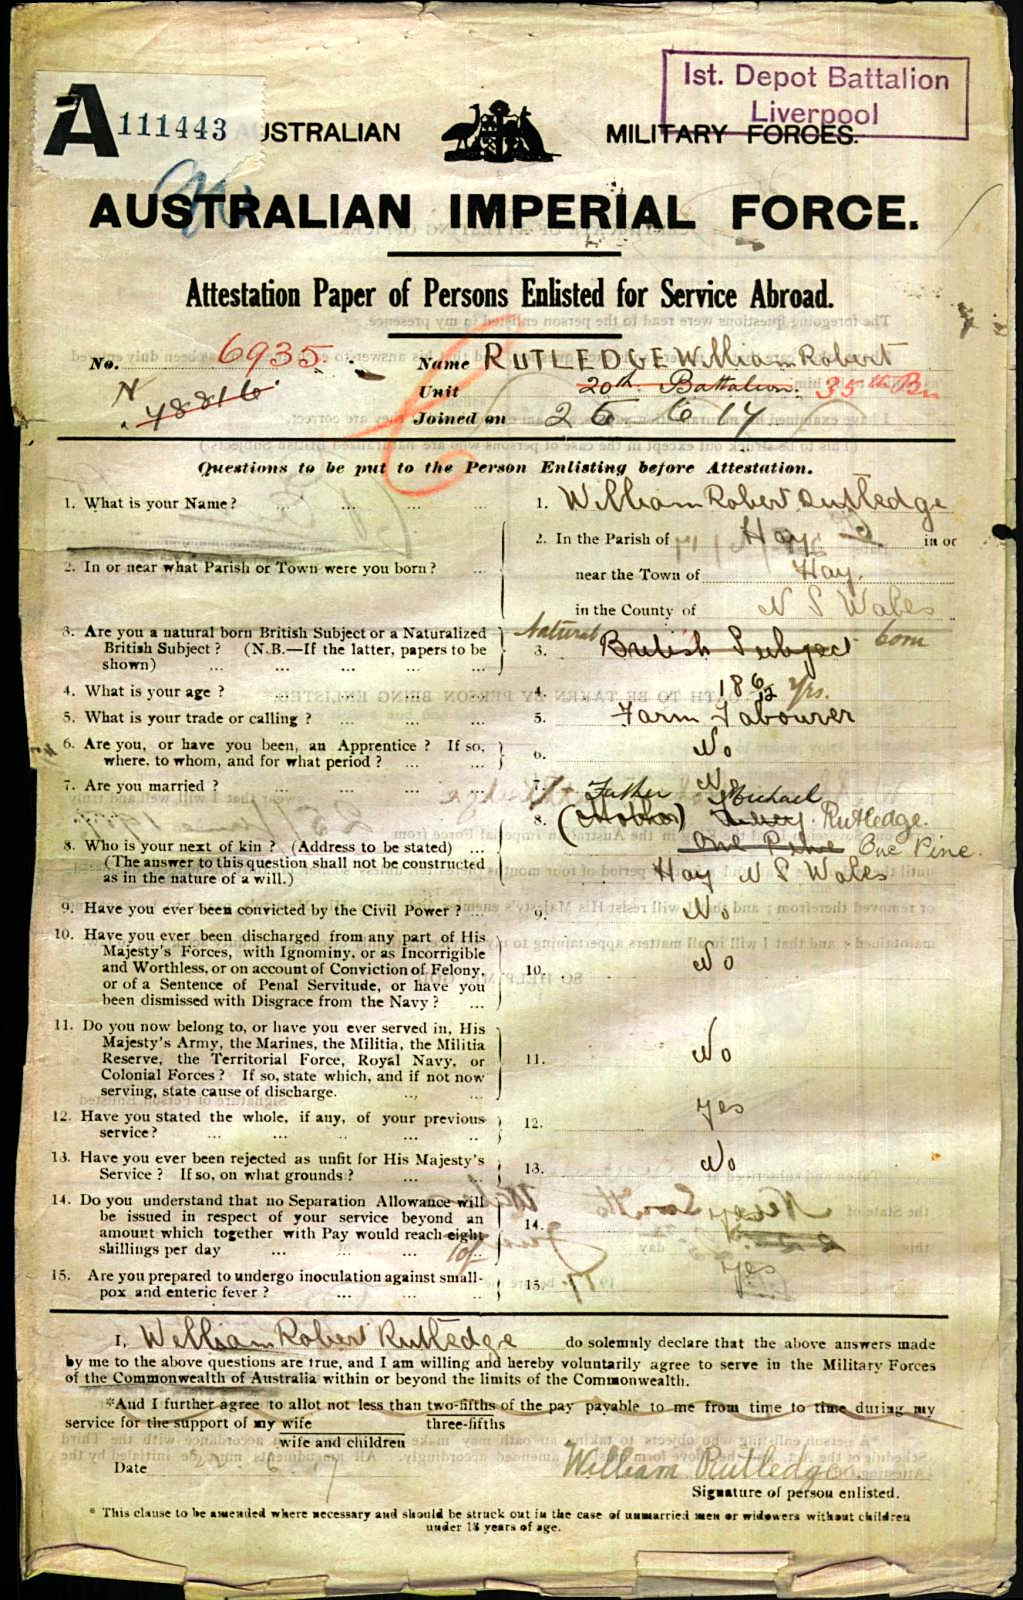 1st. Depot Battalion
Liverpool
A 111443 USTRALIAN MILITARY FORCES.
AUSTRALIAN IMPERIAL FORCE.
Attestation Paper of Persons Enlisted for Service Abroad.
No. 6935 Name RUTLEDGE William Robert
N 48816 Unit 20th Battalion. 35th Bn
Joined on 26 6 17
Questions to be put to the Person Enlisting before Attestation.
1. What is your Name? ... ... ... ... 1. William Robert Rutledge
2. In the Parish of Hay in or
2. In or near what Parish or Town were you born? ... near the Town of Hay.
in the County of N S Wales
3. Are you a natural born British Subject or a Naturalized Natural born
British Subject? (N.B.—If the latter, papers to be 3. British Subject
shown) ... ... ... ... ...
4. What is your age? ... ... ... ... 4. 18 6/12 yrs.
5. What is your trade or calling? ... ... ... 5. Farm Labourer
6. Are you, or have you been, an Apprentice? If so, 6. No
where, to whom, and for what period? ... ...
7. Are you married? ... ... ... ... 7. No
Father Michael
8. (Mother) Rutledge.
8. Who is your next of kin? (Address to be stated) ... One Pine One Pine.
(The answer to this question shall not be constructed
as in the nature of a will.) Hay N S Wales
9. Have you ever been convicted by the Civil Power? ... 9. No
10. Have you ever been discharged from any part of His
Majesty's Forces, with Ignominy, or as Incorrigible
and Worthless, or on account of Conviction of Felony, 10. No
or of a Sentence of Penal Servitude, or have you
been dismissed with Disgrace from the Navy? ...
11. Do you now belong to, or have you ever served in, His
Majesty's Army, the Marines, the Militia, the Militia
Reserve, the Territorial Force, Royal Navy, or 11. No
Colonial Forces? If so, state which, and if not now
serving, state cause of discharge. ... ...
12. Have you stated the whole, if any, of your previous 12. yes
service? ... ... ... ... ...
13. Have you ever been rejected as unfit for His Majesty's 13. No
Service? If so, on what grounds? ... ...
14. Do you understand that no Separation Allowance will
be issued in respect of your service beyond an 14.
amount which together with Pay would reach eight
shillings per day ... ... ... 10/-
15. Are you prepared to undergo inoculation against small- 15. yes
pox and enteric fever? ... ... ...
I, William Robert Rutledge do solemnly declare that the above answers made
by me to the above questions are true, and I am willing and hereby voluntarily agree to serve in the Military Forces
of the Commonwealth of Australia within or beyond the limits of the Commonwealth.
*And I further agree to allot not less than two-fifths of the pay payable to me from time to time during my
service for the support of my wife three-fifths
wife and children
Date 22. 6. 17 William Rutledge
Signature of person enlisted.
* This clause to be amended where necessary and should be struck out in the case of unmarried men or widowers without children
under 18 years of age.